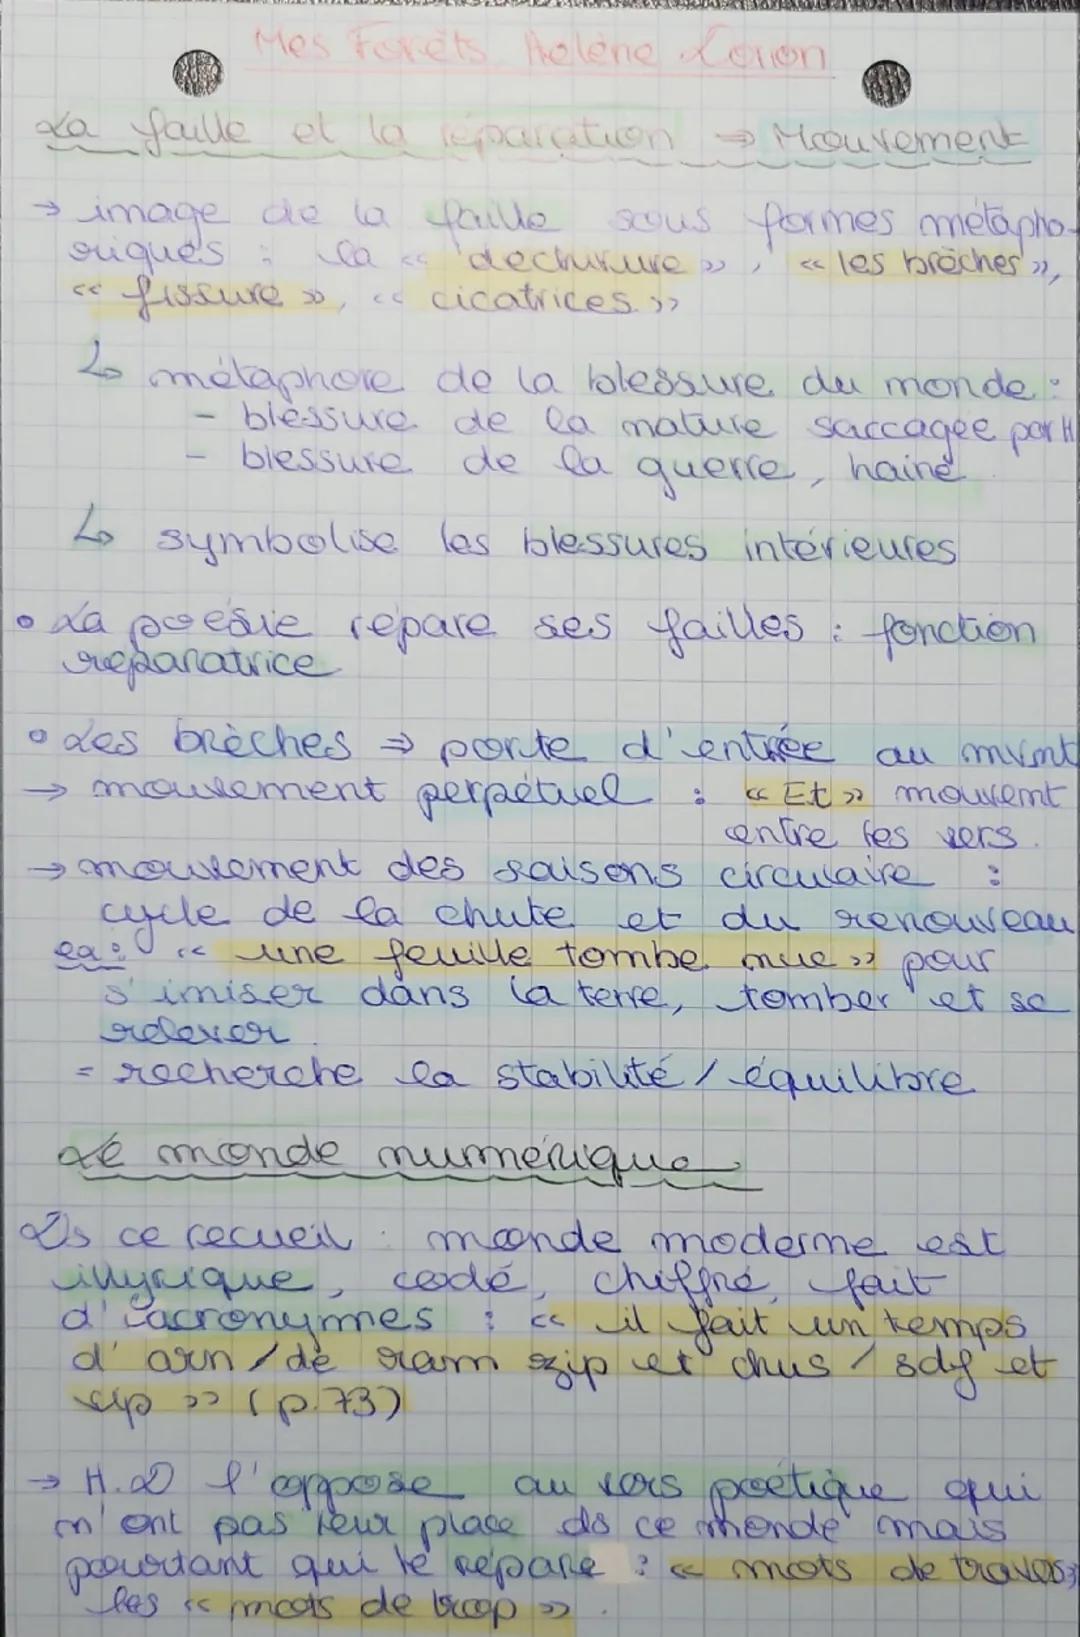 Mes Forêts Hélène Dorion
La faille et la réparation ⇒ Mouvement
→ image de la faille sous formes métapho-
riques : la « déchirure », « les brèches »,
« fissure », « cicatrices »
↳ métaphore de la blessure du monde :
- blessure de la nature saccagée par H
- blessure de la guerre, haine
↳ symbolise les blessures intérieures
• La poésie répare ses failles : fonction
réparatrice
• Les brèches ⇒ porte d'entrée au mvmt
→ mouvement perpétuel : « Et » mouvemt
entre les vers.
→ mouvement des saisons circulaire :
cycle de la chute et du renouveau
ex : « une feuille tombe mue » pour
s'imiser dans la terre, tomber et se
relever.
= recherche la stabilité / équilibre
Le monde numérique
Ds ce recueil : monde moderne est
illyrique, codé, chiffré, fait
d'acronymes : « il fait un temps
d'arn / de ram zip et chus / sdf et
vip » (p.73)
→ H.D l'oppose au vers poétique qui
n'ont pas leur place ds ce monde mais
pourtant qui le répare : « mots de travers »
les « mots de trop ».